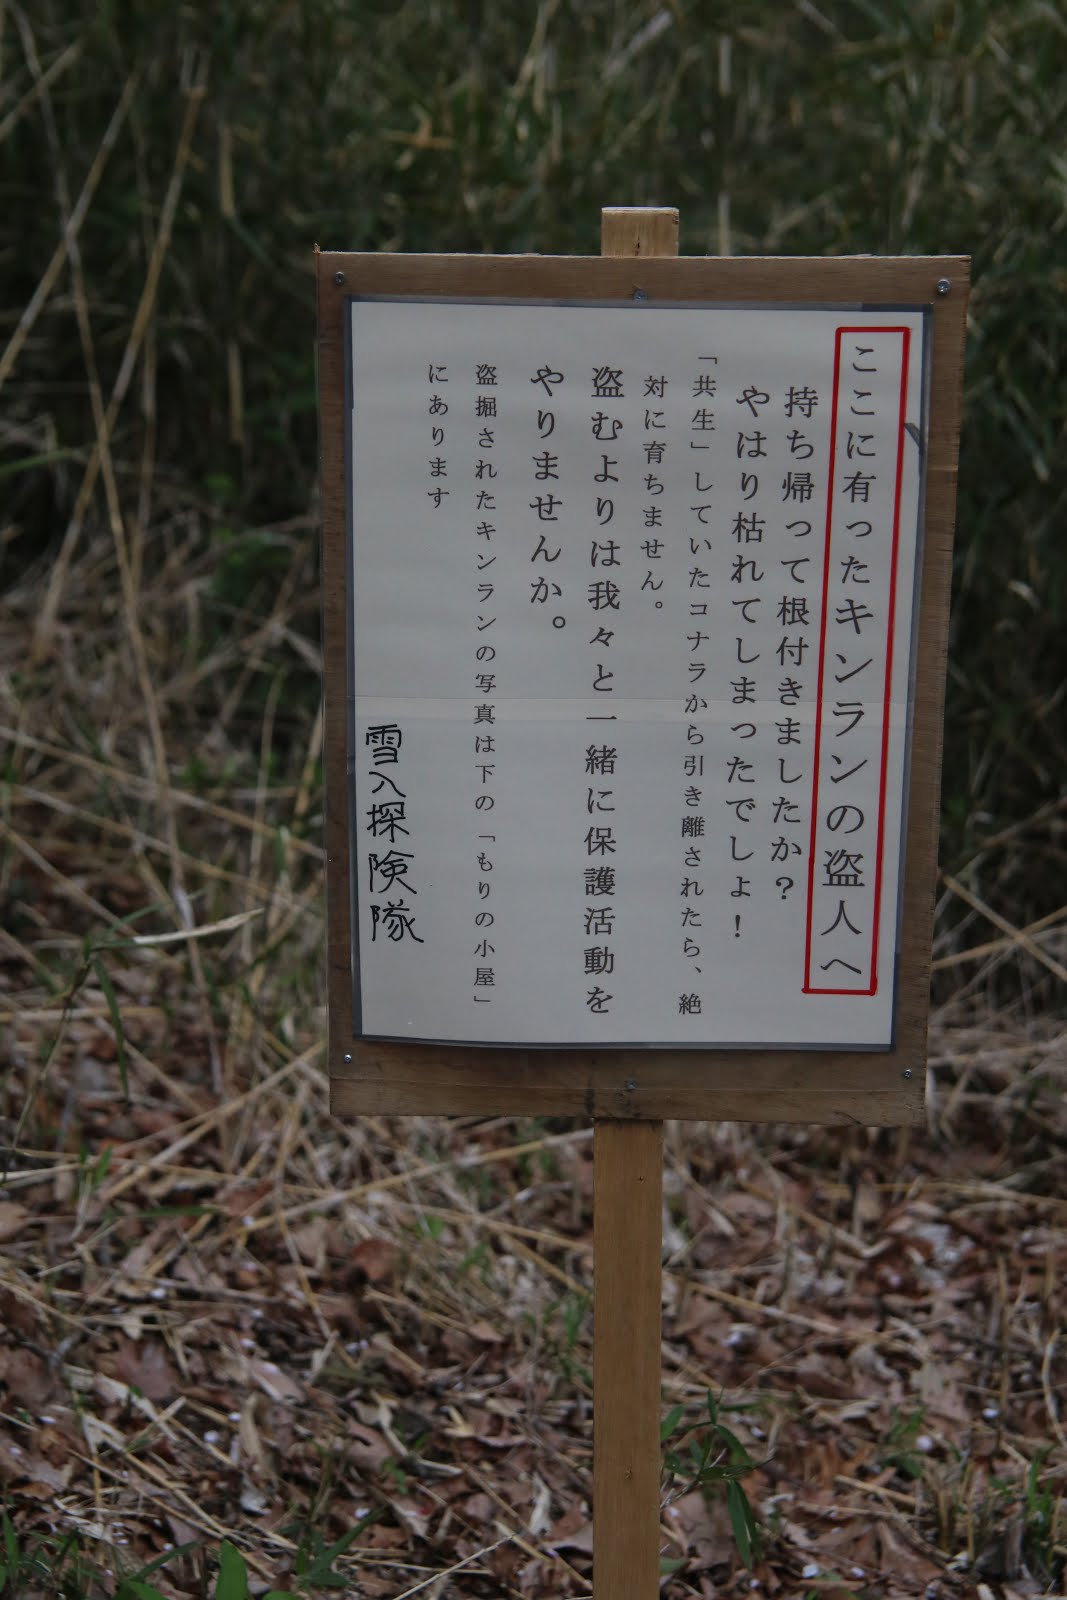 ここに有ったキンランの盗人へ
持ち帰って根付きましたか?
やはり枯れてしまったでしょ!
「共生」していたコナラから引き離されたら、絶
対に育ちません。
盗むよりは我々と一緒に保護活動を
やりませんか。
盗掘されたキンランの写真は下の「もりの小屋」
にあります
雪入探険隊